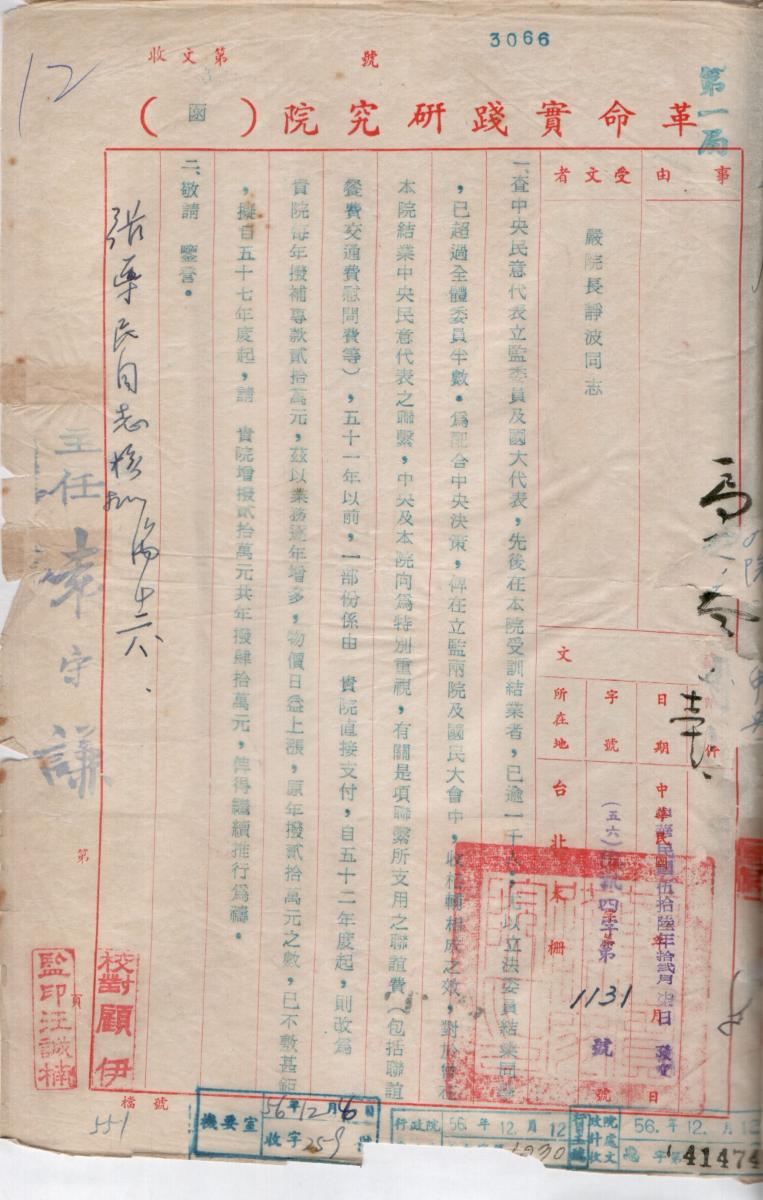 3066
收文第 號
第一局
12
革命實踐研究院（函）
事由
受文者
嚴院長靜波同志
文
日期 中華民國伍拾陸年拾貳月 日
字號 （五六） 字第1131號
所在地 台北木柵
件
一、查中央民意代表立監委員及國大代表，先後在本院受訓結業者，已逾一千
，已超過全體委員半數。為配合中央決策，俾在立監兩院及國民大會中，收相輔相成之效，對於曾在
本院結業中央民意代表之聯繫，中央及本院向為特別重視，有關是項聯繫所支用之聯誼費（包括聯誼
餐費交通費慰問費等），五十一年以前，一部份係由 貴院直接支付，自五十二年度起，則改為
貴院每年撥補專款貳拾萬元，茲以業務逐年增多，物價日益上漲，原年撥貳拾萬元之數，已不敷甚鉅
，擬自五十七年度起，請 貴院增撥貳拾萬元共年撥肆拾萬元，俾得繼續推行為禱。
二、敬請 鑒詧。
主任 謙
第
頁
校對顧伊
監印汪誠楠
檔號
551
機要室 56年12月6日
收字259號
行政院 56.年12.月12
56.年12.月
41474